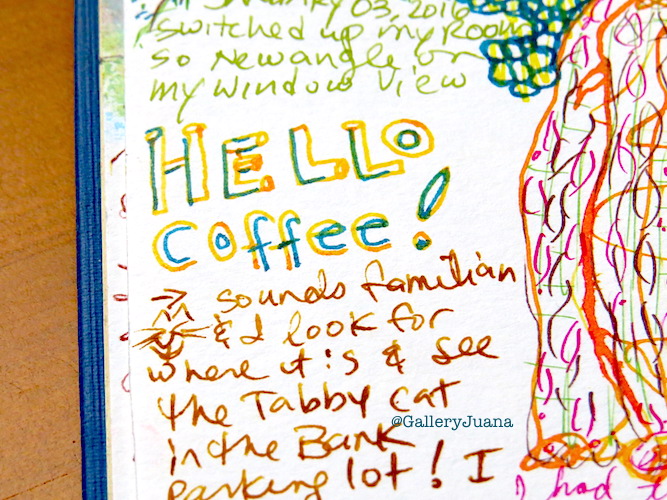 January 03, 2016
switched up my Room
so New angle on
my window view
HELLO
coffee!
→ sounds familian
& I look for
where it is & see
the Tabby cat
in the Bank
parking lot! I
@GalleryJuana
I had